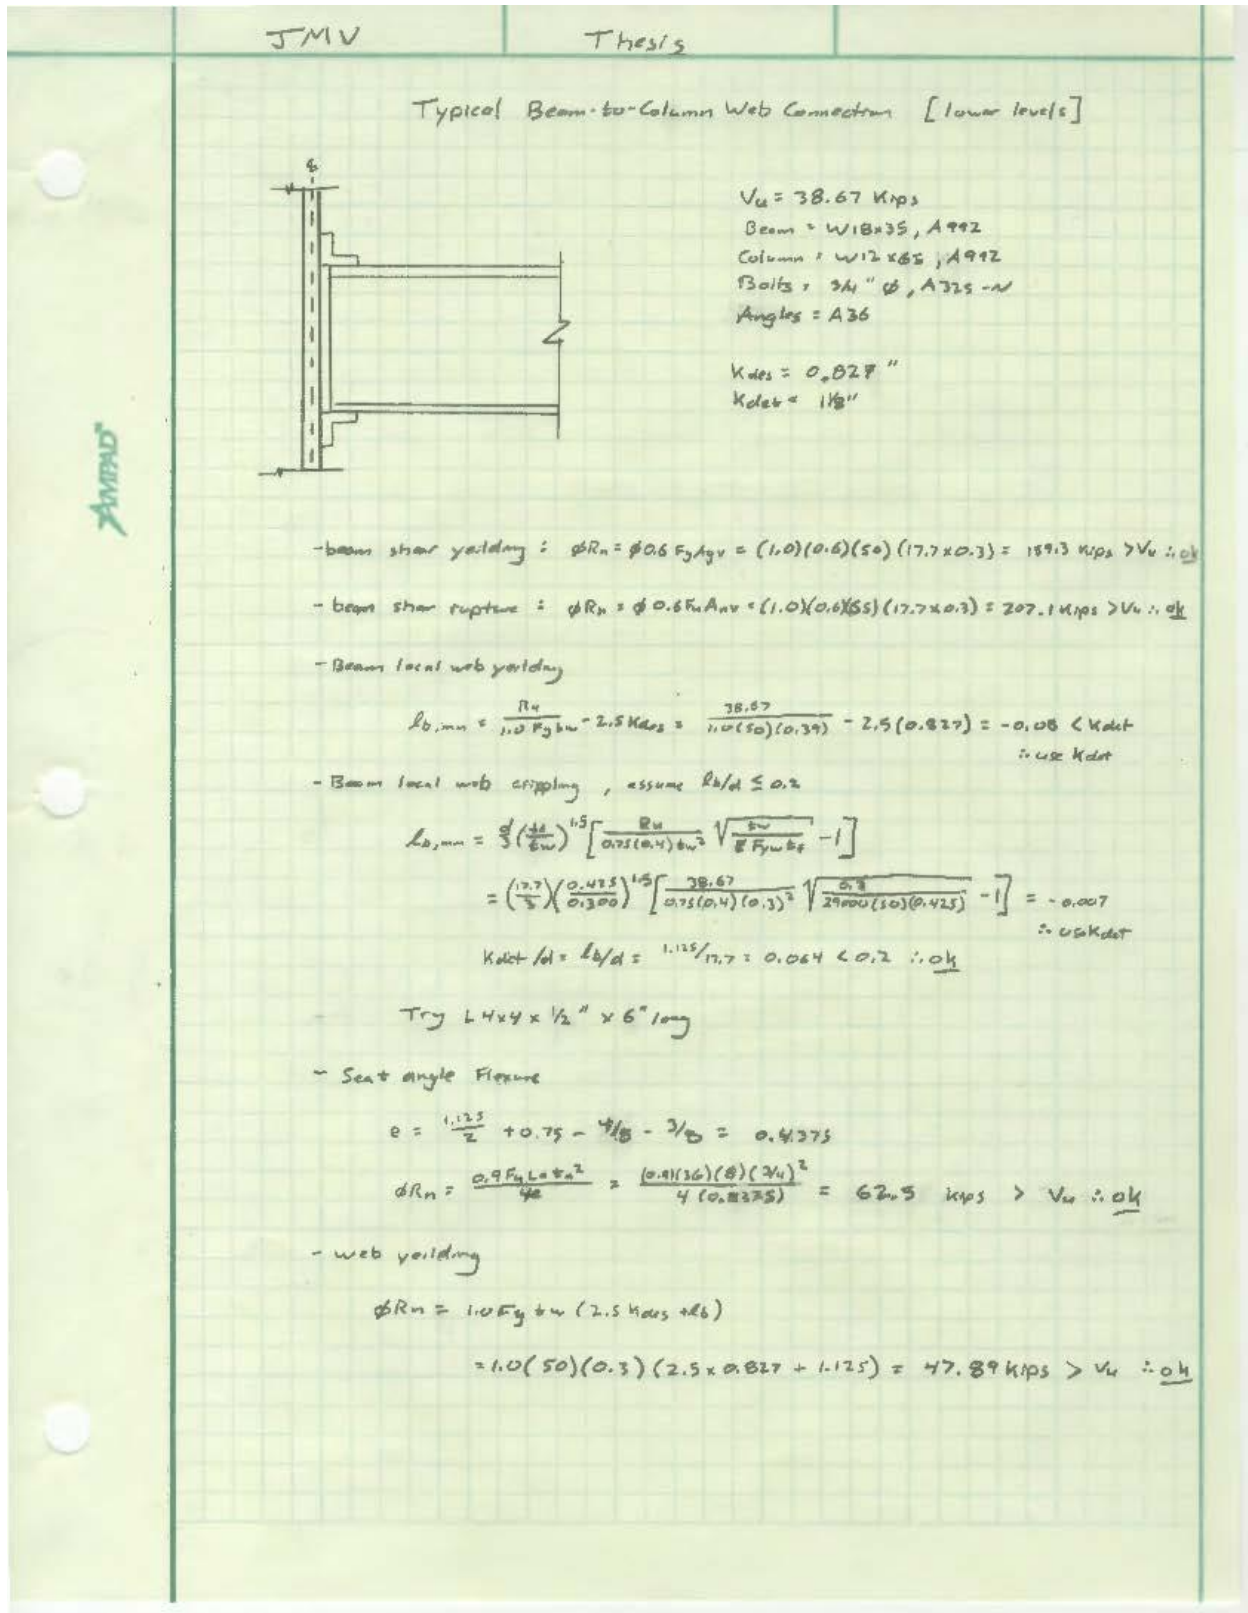 JMV Thesis
Typical Beam-to-Column Web Connection [lower levels]
Vu = 38.67 Kips
Beam = W18x35, A992
Column = W12x65, A992
Bolts = 3/4" φ, A325-N
Angles = A36
Kdes = 0.827"
Kdet = 1 1/8"
AMPAD
- beam shear yeilding : φRn = φ0.6 FyAgv = (1.0)(0.6)(50)(17.7x0.3) = 159.3 Kips > Vu ∴ ok
- beam shear rupture : φRn = φ0.6FuAnv = (1.0)(0.6)(65)(17.7x0.3) = 207.1 Kips > Vu ∴ ok
- Beam local web yeilding
lb,min = Ru/1.0 Fy tw - 2.5 Kdes = 38.67/1.0(50)(0.39) - 2.5(0.827) = -0.08 < Kdet
∴ use Kdet
- Beam local web crippling , assume lb/d ≤ 0.2
lb,min = d/3 (tf/tw)^1.5 [Ru/0.75(0.4)tw² √(tw/E Fyw tf) - 1]
= (17.7/3)(0.425/0.300)^1.5 [38.67/0.75(0.4)(0.3)² √(0.3/29000(50)(0.425)) - 1] = -0.007
∴ use Kdet
Kdet/d = lb/d = 1.125/17.7 = 0.064 < 0.2 ∴ ok
Try L4x4x1/2" x 6" long
- Seat angle Flexure
e = 1.125/2 + 0.75 - 4/8 - 3/8 = 0.4375
φRn = 0.9 Fy La ta²/4e = (0.9)(36)(8)(3/4)²/4 = 62.5 kips > Vu ∴ ok
- web yeilding
φRn = 1.0 Fy tw (2.5 Kdes + lb)
= 1.0(50)(0.3)(2.5 x 0.827 + 1.125) = 47.89 Kips > Vu ∴ ok